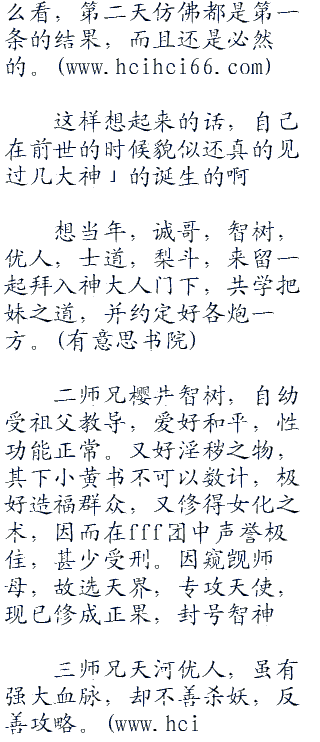 么看，第二天仿佛都是第一
条的结果，而且还是必然
的。(www.hcihci66.com)
这样想起来的话，自己
在前世的时候貌似还真的见
过几大神」的诞生的啊
想当年，诚哥，智树，
优人，士道，梨斗，来留一
起拜入神大人门下，共学把
妹之道，并约定好各炮一
方。(有意思书院)
二师兄樱井智树，自幼
受祖父教导，爱好和平，性
功能正常。又好淫秽之物，
其下小黄书不可以数计，极
好造福群众，又修得女化之
术，因而在fff团中声誉极
佳，甚少受刑。因窥觊师
母，故选天界，专攻天使，
现已修成正果，封号智神
三师兄天河优人，虽有
强大血脉，却不善杀妖，反
善攻略。(www.hci